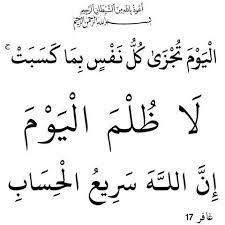 أعوذ بالله من الشيطان الرجيم
بسم الله الرحمن الرحيم
الْيَوْمَ تُجْزَىٰ كُلُّ نَفْسٍ بِمَا كَسَبَتْ ۚ
لَا ظُلْمَ الْيَوْمَ
إِنَّ اللَّهَ سَرِيعُ الْحِسَابِ
غافر 17